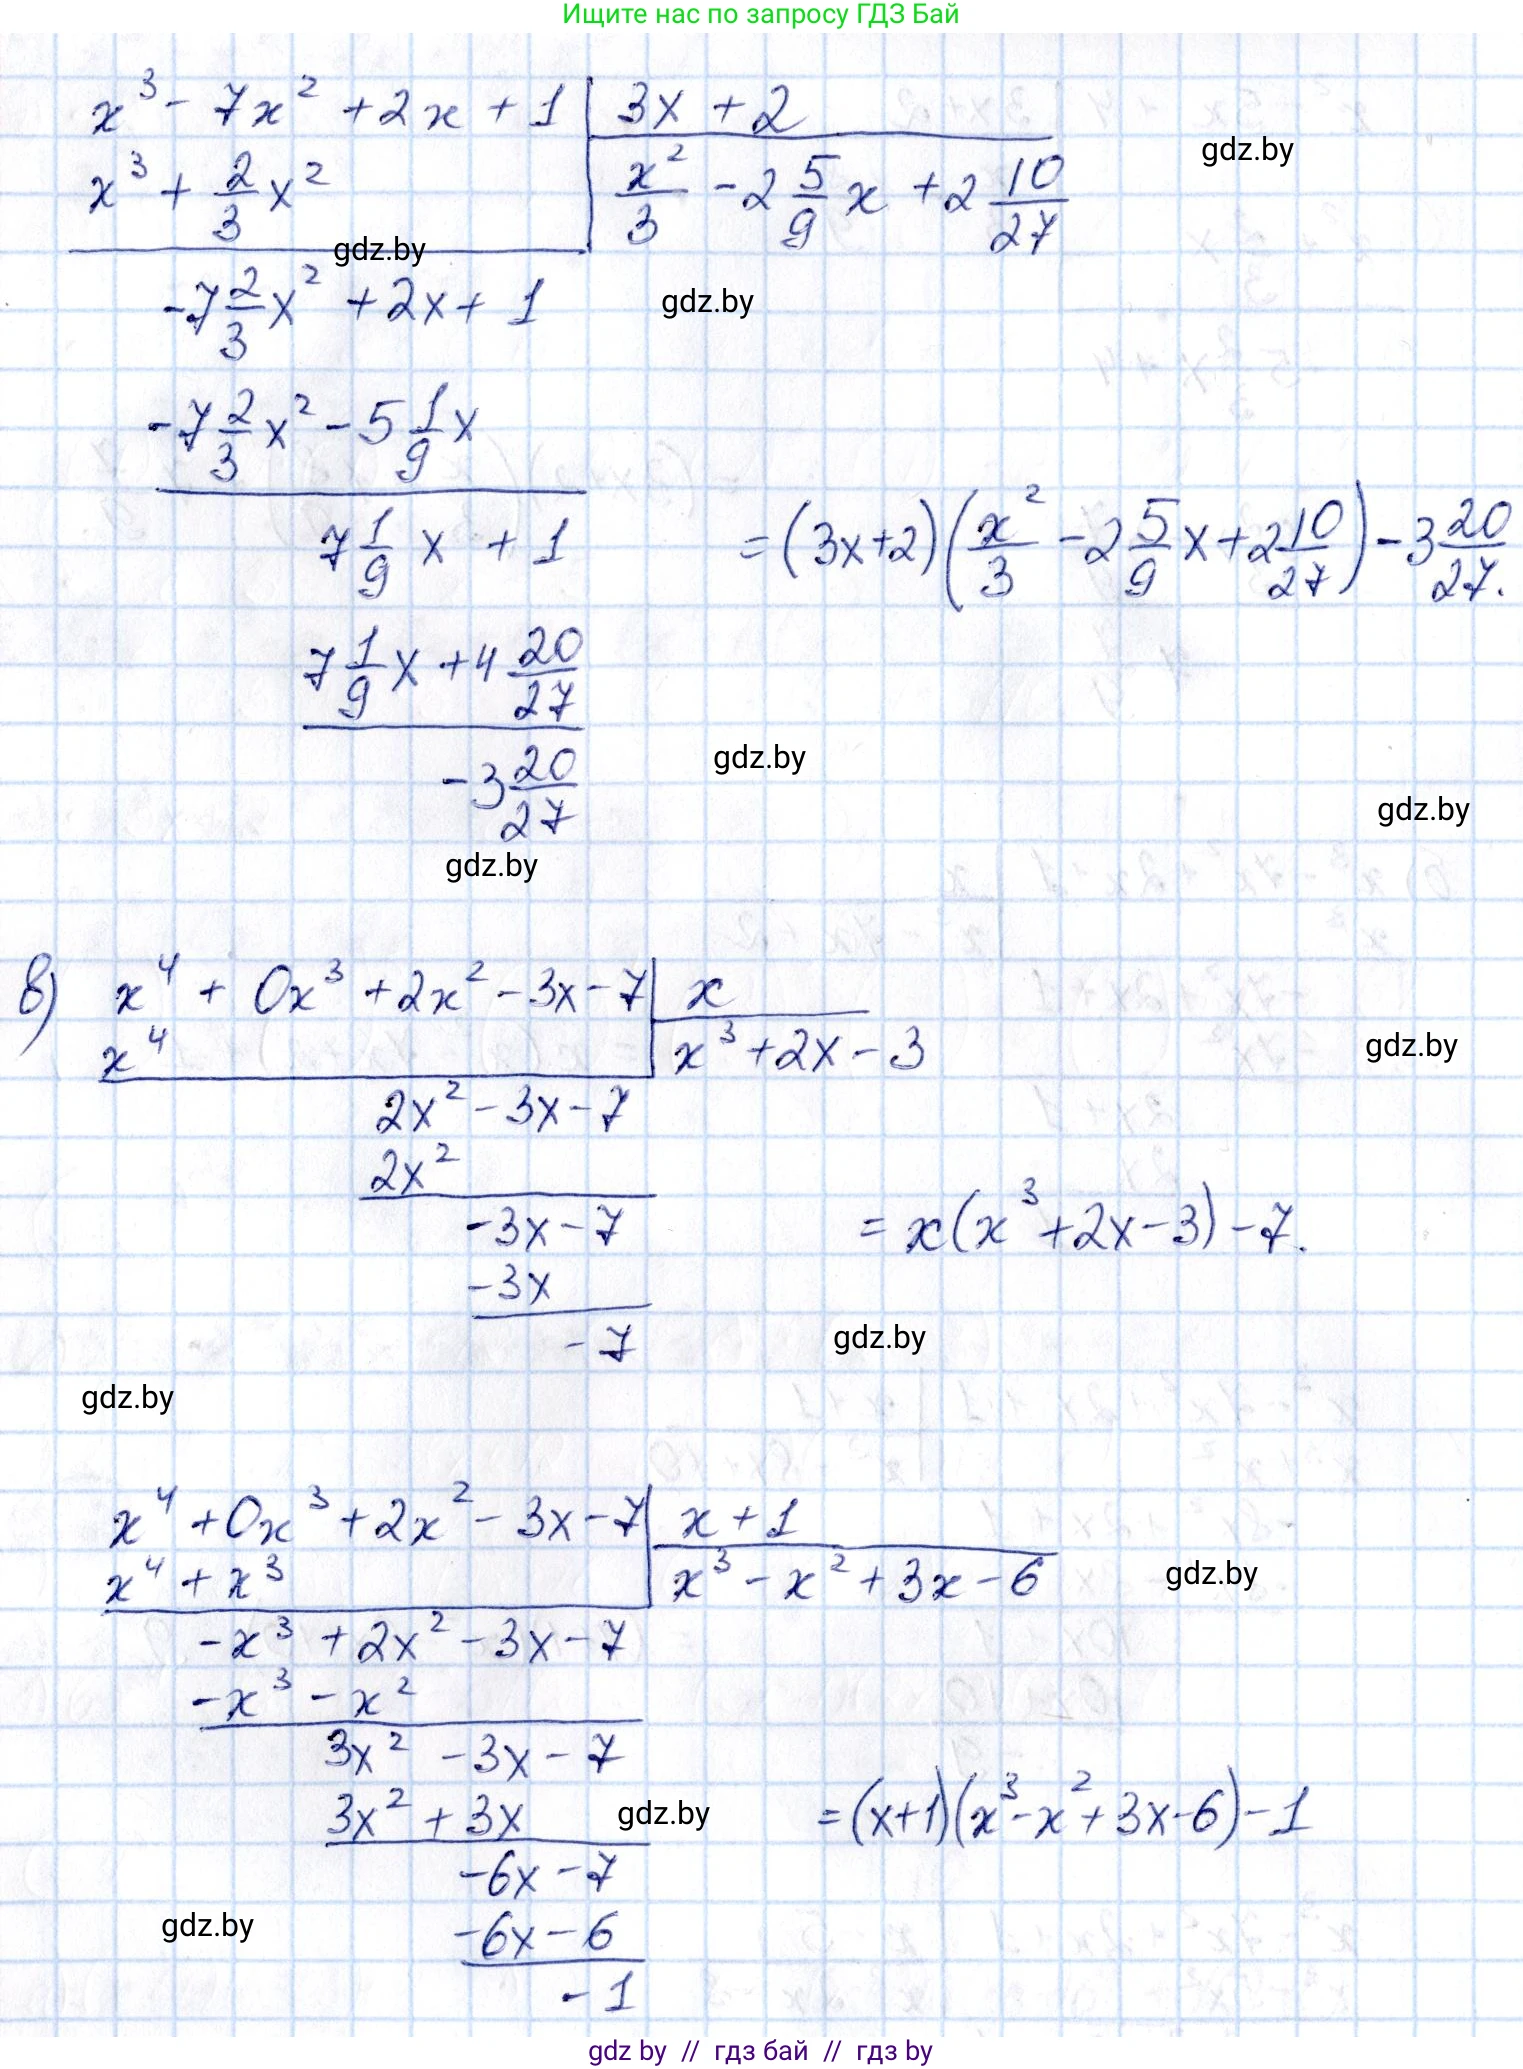 Ищите нас по запросу ГДЗ Бай
x³ - 7x² + 2x + 1 | 3x + 2
gdz.by
x³ + 2/3 x² | x²/3 - 2 5/9 x + 2 10/27
gdz.by
-7 2/3 x² + 2x + 1
gdz.by
-7 2/3 x² - 5 1/9 x
7 1/9 x + 1 = (3x+2)(x²/3 - 2 5/9 x + 2 10/27) - 3 20/27.
7 1/9 x + 4 20/27
gdz.by
-3 20/27
gdz.by
gdz.by
в) x⁴ + 0x³ + 2x² - 3x - 7 | x
x⁴ | x³ + 2x - 3
gdz.by
2x² - 3x - 7
2x²
-3x - 7 = x(x³ + 2x - 3) - 7.
-3x
-7
gdz.by
gdz.by
x⁴ + 0x³ + 2x² - 3x - 7 | x + 1
x⁴ + x³ | x³ - x² + 3x - 6
gdz.by
-x³ + 2x² - 3x - 7
-x³ - x²
3x² - 3x - 7
3x² + 3x
gdz.by
= (x+1)(x³ - x² + 3x - 6) - 1
-6x - 7
gdz.by
-6x - 6
-1
gdz by // гдз бай // гдз by